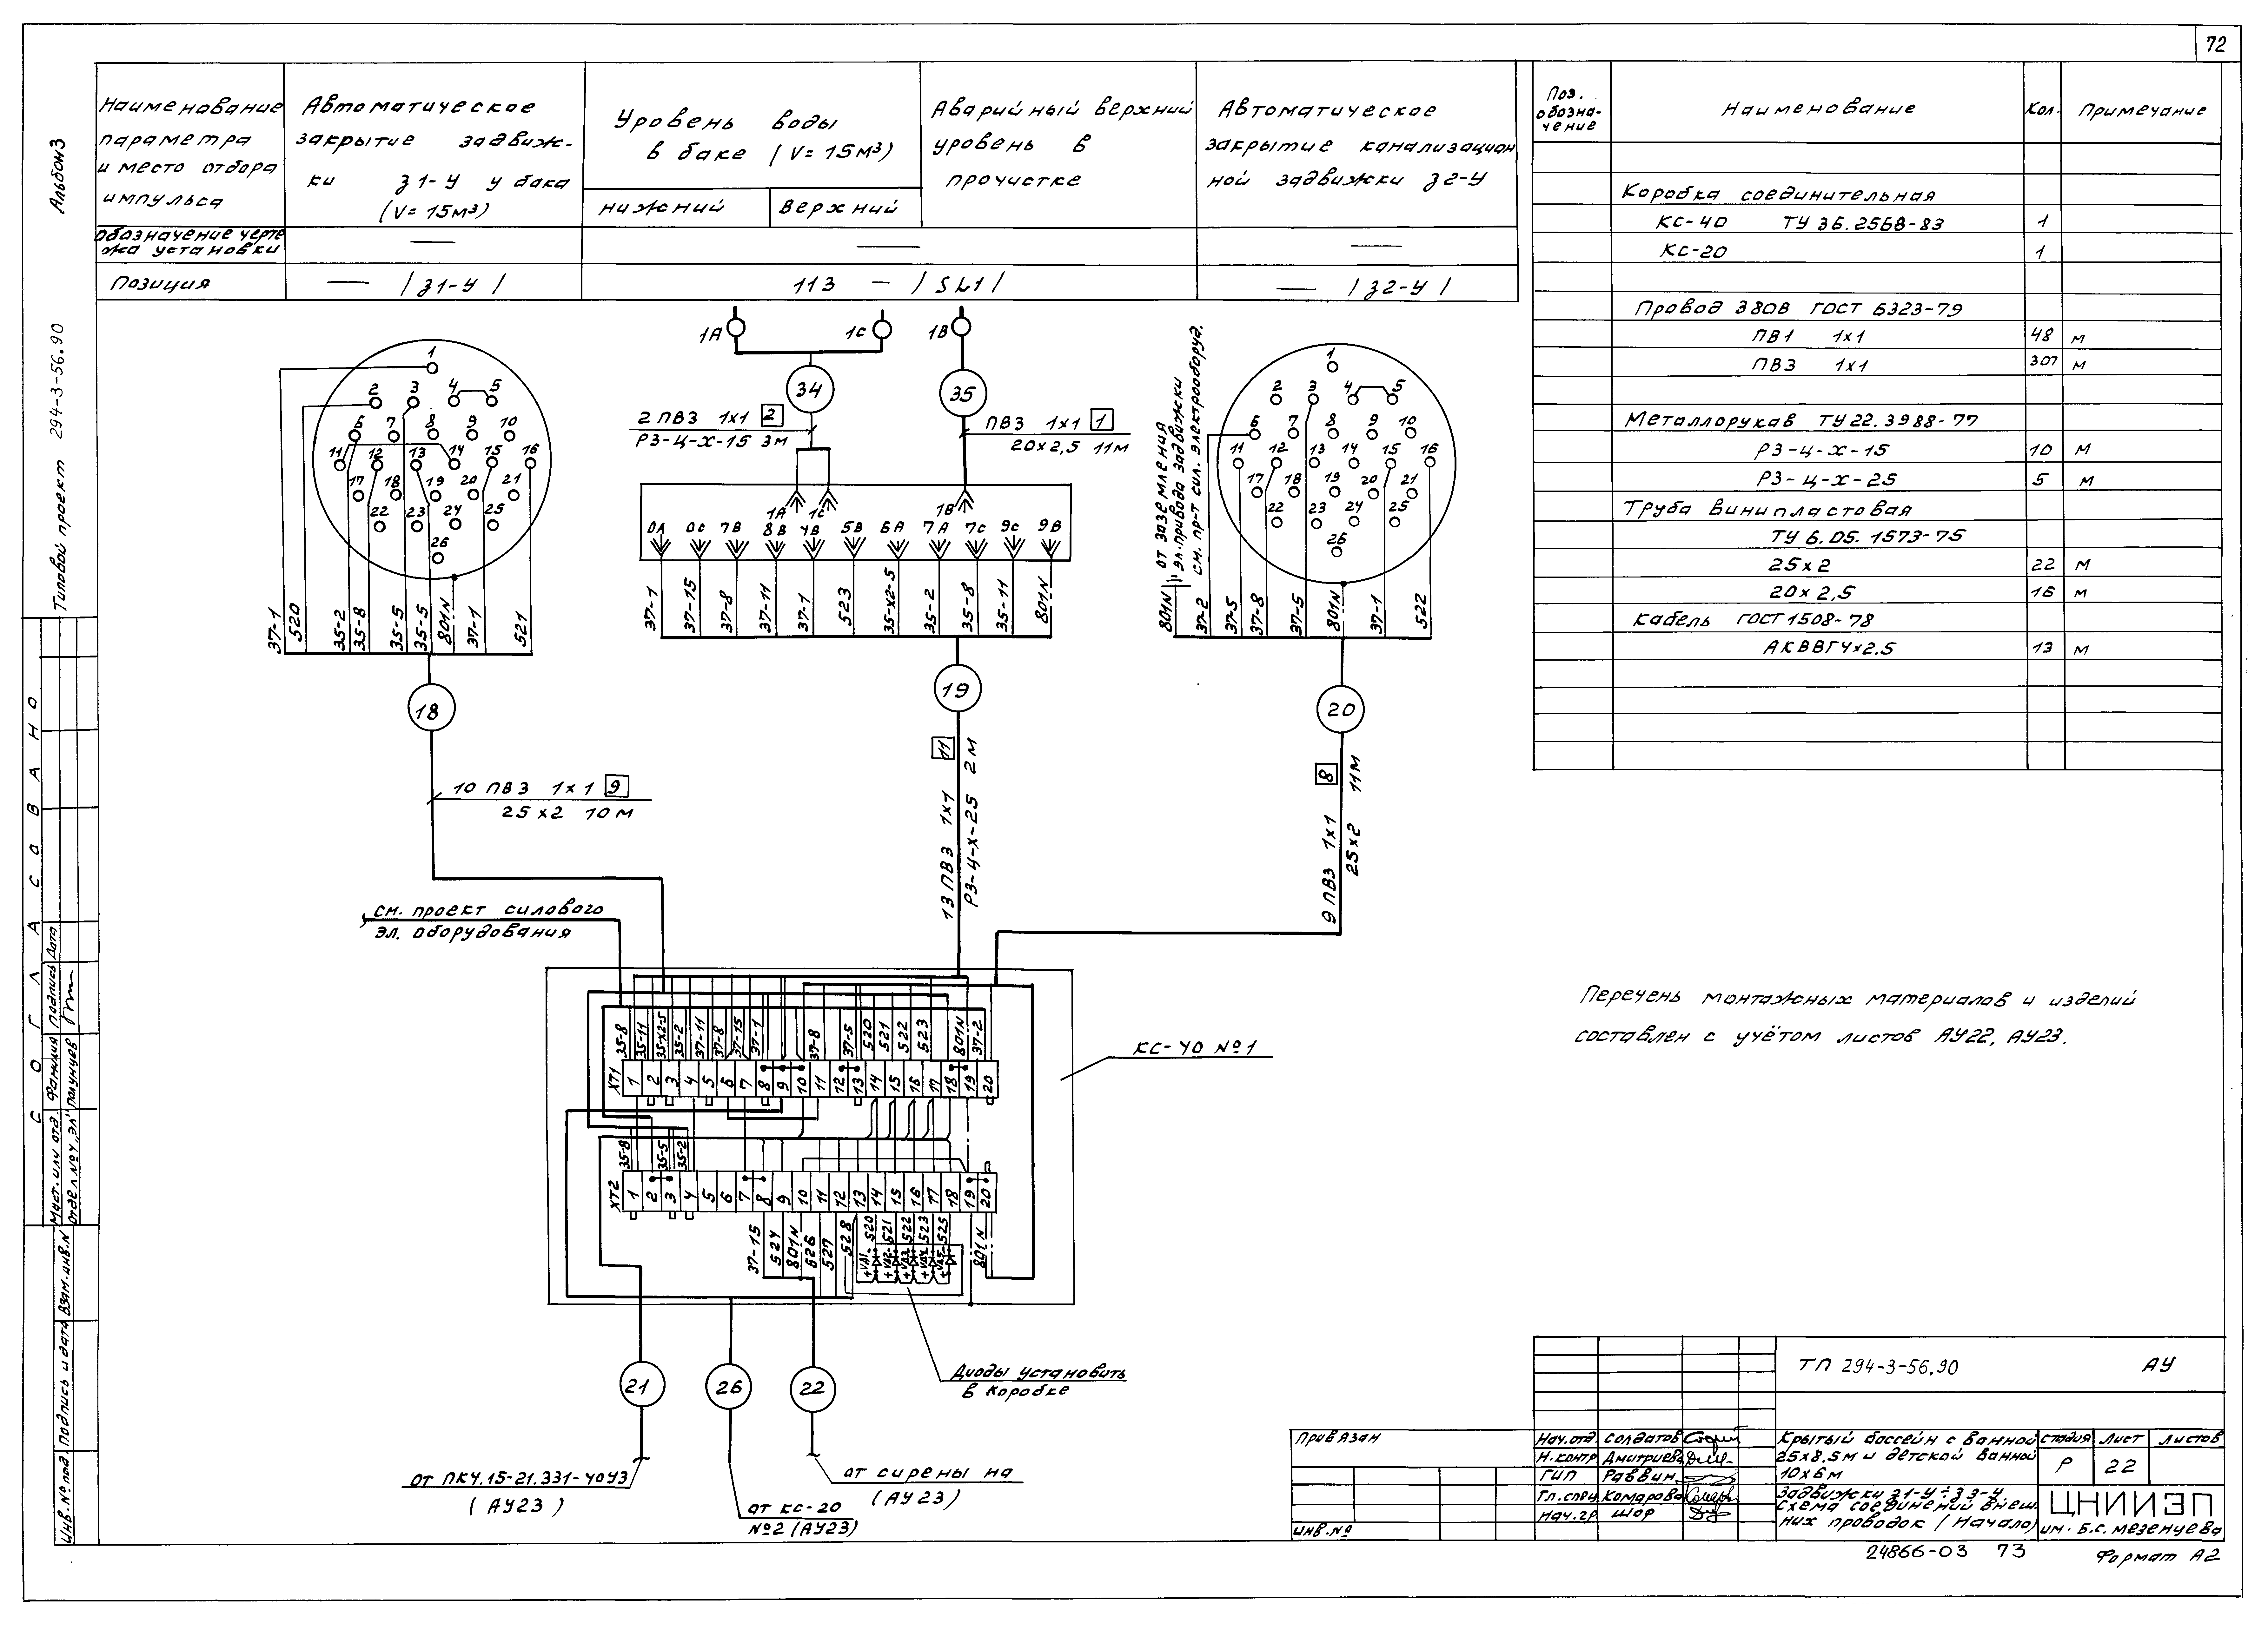 72
Альбом 3
Типовой проект 294-3-56.90
СОГЛАСОВАНО
Наименование
параметра
и место отбора
импульса
Автоматическое
закрытие задвиж-
ки З1-У у бака
(V=15м³)
Уровень воды
в баке (V=15м³)
нижний
верхний
Аварийный верхний
уровень в
прочистке
Автоматическое
закрытие канализацион
ной задвижки З2-У
Обозначение черте
жа установки
Позиция
— /З1-У/
113 — /SL1/
— /З2-У/
Поз. обозна-чение
Наименование
Кол.
Примечание
Коробка соединительная
КС-40 ТУ 36.2568-83 1
КС-20 1
Провод 380В ГОСТ 6323-79
ПВ1 1х1 48 м
ПВ3 1х1 307 м
Металлорукав ТУ 22.3988-77
РЗ-Ц-Х-15 10 м
РЗ-Ц-Х-25 5 м
Труба винипластовая
ТУ 6.05.1573-75
25х2 22 м
20х2,5 16 м
Кабель ГОСТ 1508-78
АКВВГ4х2.5 13 м
1
2 3 4 5
6 7 8 9 10
11 12 13 14 15 16
17 18 19 20 21
22 23 24 25
26
37-1 520 35-2 35-8 35-5 35-5 801N 37-1 521
18
10 ПВ3 1х1 9
25х2 10м
1А 1С 1В
34
35
2 ПВ3 1х1 2
РЗ-Ц-Х-15 3м
ПВ3 1х1 1
20х2,5 11м
1А 1С 1В
0А 0С 7В 8В 4В 5В 6А 7А 7С 9С 9В
37-1 37-15 37-8 37-11 37-1 523 35-х2-5 35-2 35-8 35-11 801N
19
13 ПВ3 1х1 11
РЗ-Ц-Х-25 2м
от заземления
эл.привода задвижки
см. пр-т сил. электрооборуд.
1
2 3 4 5
6 7 8 9 10
11 12 13 14 15 16
17 18 19 20 21
22 23 24 25
26
801N 37-2 37-5 37-8 37-5 801N 37-1 522
20
9 ПВ3 1х1 8
25х2 11м
см. проект силового
эл. оборудования
35-8 35-11 35-х2-5 35-2 37-11 37-8 37-15 37-1 37-8 37-5 520 521 522 523 801N 37-2
ХТ1 1 2 3 4 5 6 7 8 9 10 11 12 13 14 15 16 17 18 19 20
35-8 35-5 35-2
ХТ2 1 2 3 4 5 6 7 8 9 10 11 12 13 14 15 16 17 18 19 20
37-15 524 801N 526 527 528 520 521 522 523 525 801N
+VД1 +VД2 +VД3 +VД4 +VД5
КС-40 №1
Диоды установить
в коробке
21
26
22
от ПКУ.15-21.331-40У3
(АУ23)
от КС-20
№2 (АУ23)
от сирены на
(АУ23)
Перечень монтажных материалов и изделий
составлен с учётом листов АУ22, АУ23.
ТП 294-3-56.90 АУ
Привязан
инв.№
Нач.отд. Солдатов
Н.контр Дмитриева
ГИП Раввин
Гл.спец. Комарова
Нач.гр Шор
Крытый бассейн с ванной
25х8,5м и детской ванной
10х6м
Стадия Лист Листов
Р 22
Задвижки З1-У÷З3-У.
Схема соединений внеш
них проводок (Начало)
ЦНИИЭП
им. Б.С. Мезенцева
24866-03 73
Формат А2
Фамилия Подпись Дата
Отдел №4 „Эл"
Инв.№ под. Подпись и дата Взам.инв.N